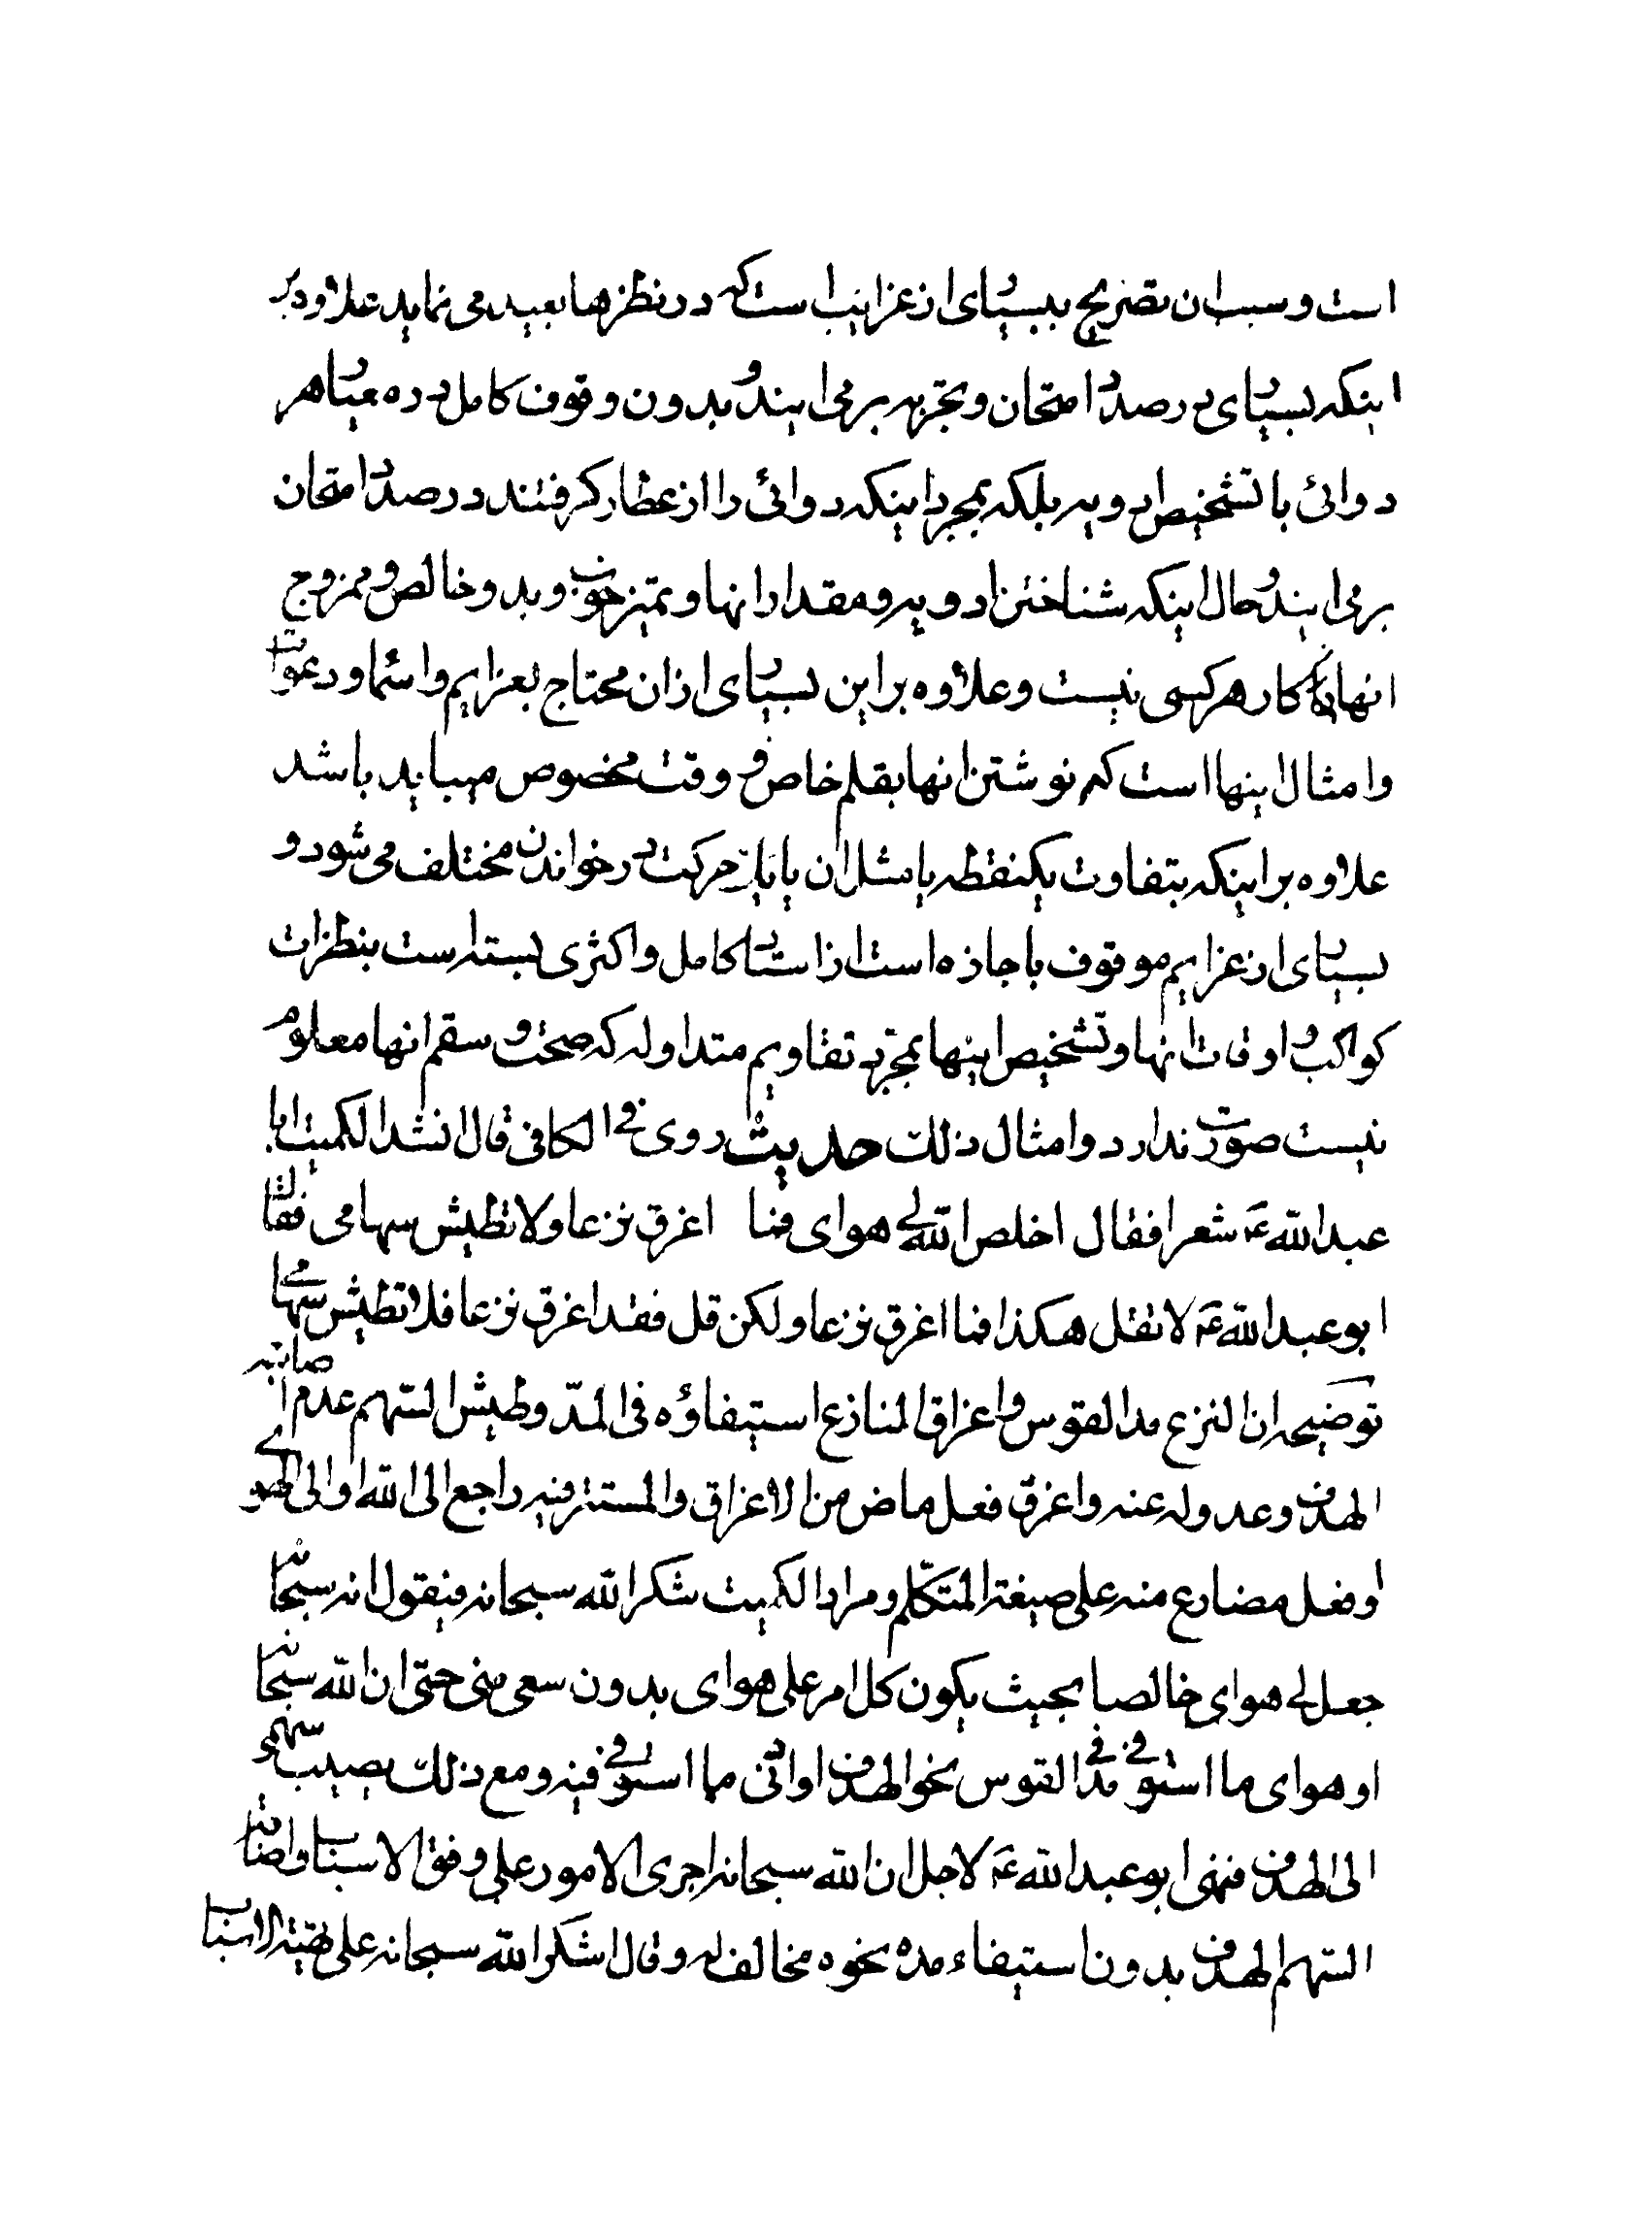 است و سبب ان تصریح ببسیاری از غرایب است که در نظرها بعید می نماید علاوه بر
اینکه بسیاری در صدد امتحان و تجربه برمی ایند و بدون وقوف کامل در ده معیار هر
دوائی با تشخیص ادویه بلکه بمجرد اینکه دوائی را از عطار کرفتند در صدد امتحان
برمی ایند و حال اینکه شناختن ادویه و مقدار انها و تمیز خوب و بد و خالص و ممزوج
انها کار هر کسی نیست و علاوه بر این بسیاری از ان محتاج بعزایم و اسما و دعوات
و امثال اینها است که نوشتن انها بقلم خاص و وقت مخصوص میباید باشد
علاوه بر اینکه بتفاوت یکنقطه یا مثل ان یا یک حرکت در خواندن مختلف می شود و
بسیاری از عزایم موقوف باجازه است از استاد کامل و اکثری بسته است بنظرات
کواکب و اوقات انها و تشخیص اینها بمجرد تقاویم متداوله که صحت و سقم انها معلوم
نیست صورت ندارد و امثال ذلک حدیث روی فی الکافی قال انشد الکمیت ابا
عبد الله ع شعرا فقال اخلص الله لی هوای فما اغرق نزعا و لا تطیش سهامی فقال
ابو عبد الله ع لا تقل هکذا فما اغرق نزعا و لکن قل فقد اغرق نزعا فلا تطیش سهامی
توضیحه ان النزع مد القوس و اغراق النازع استیفاؤه فی المدّ و طیش السهم عدم اصابته
الهدف و عدوله عنه و اغرق فعل ماض من الاغراق و المستتر فیه راجع الی الله او الی الهوای
او فعل مضارع منه علی صیغة المتکلّم و مراد الکمیت شکر الله سبحانه فیقول انه سبحانه
جعل لی هوای خالصا بحیث یکون کل امر علی هوای بدون سعی منی حتی ان الله سبحانه
او هوای ما استوفی فی مد القوس نحو الهدف او انّی ما استوفی فیه و مع ذلک یصیب سهمی
الی الهدف فنهی ابو عبد الله ع لاجل ان الله سبحانه اجری الامور علی وفق الاسباب و اصابة
السهم الهدف بدون استیفاء مده نحوه مخالف له و قال اشکر الله سبحانه علی تهیئة الاسباب